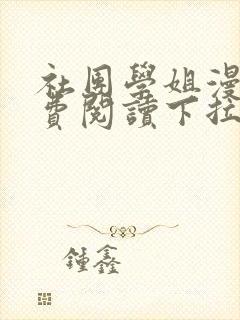 社团學姐漫
費閱讀下拉
鍾鑫